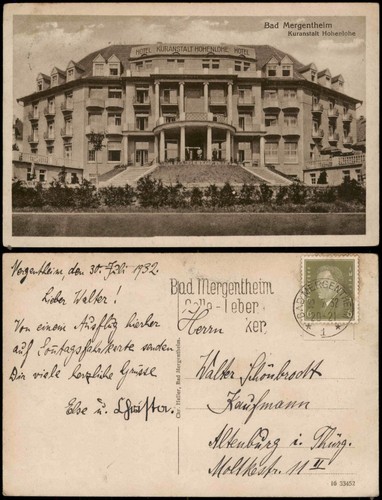 Bad Mergentheim
Kuranstalt Hohenlohe
HOTEL KURANSTALT HOHENLOHE HOTEL
Mergentheim den 30. Juli 1932.
Lieber Walter!
Von einem Ausflug hierher
auf Sonntagsfahrkarte senden
Dir viele herzliche Grüsse
Else u.
Bad Mergentheim
Galle-Leber
ker
BAD MERGENTHEIM
20-21
Herrn
Walter Schönbrodt
Kaufmann
Altenburg i. Thürg.
Moltkestr. 11 II
Chr. Haller, Bad Mergentheim.
16 53453